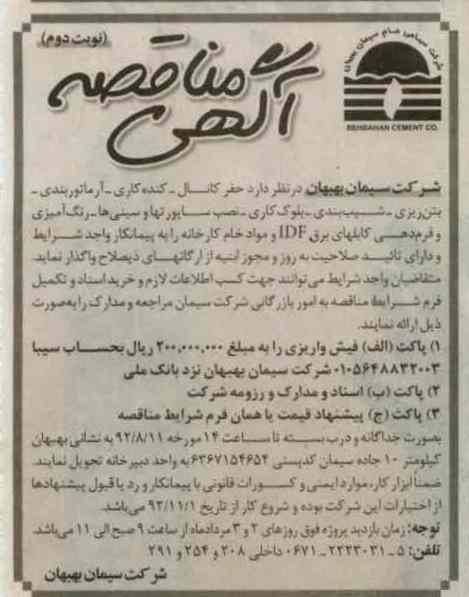 (نوبت دوم)
آگهی مناقصه
شرکت سهامی عام سیمان بهبهان
BEHBAHAN CEMENT CO.
شرکت سیمان بهبهان در نظر دارد حفر کانال ـ کنده کاری ـ آرماتوربندی ـ
بتن ریزی ـ شیب بندی ـ بلوک کاری ـ نصب ساپورتها و سینی ها ـ رنگ آمیزی
و فرم دهی کابلهای برق IDF و مواد خام کارخانه را به پیمانکار واجد شرایط
و دارای تائید صلاحیت به روز و مجوز ابنیه از ارگانهای ذیصلاح واگذار نماید.
متقاضیان واجد شرایط می توانند جهت کسب اطلاعات لازم و خرید اسناد و تکمیل
فرم شرایط مناقصه به امور بازرگانی شرکت سیمان مراجعه و مدارک را به صورت
ذیل ارائه نمایند.
۱) پاکت (الف) فیش واریزی را به مبلغ ۲۰۰,۰۰۰,۰۰۰ ریال بحساب سیبا
۰۱۰۵۶۴۸۸۳۲۰۰۳ شرکت سیمان بهبهان نزد بانک ملی
۲) پاکت (ب) اسناد و مدارک و رزومه شرکت
۳) پاکت (ج) پیشنهاد قیمت با همان فرم شرایط مناقصه
بصورت جداگانه و درب بسته تا ساعت ۱۴ مورخه ۹۲/۸/۱۱ به نشانی بهبهان
کیلومتر ۱۰ جاده سیمان کدپستی ۶۳۶۷۱۵۴۶۵۴ به واحد دبیرخانه تحویل نمایند.
ضمناً ابزار کار، موارد ایمنی و کسورات قانونی با پیمانکار و رد یا قبول پیشنهادها
از اختیارات این شرکت بوده و شروع کار از تاریخ ۹۲/۱۱/۱ می باشد.
توجه: زمان بازدید پروژه فوق روزهای ۲ و ۳ مردادماه از ساعت ۹ صبح الی ۱۱ می باشد.
تلفن: ۵ ـ ۲۲۲۳۰۳۱ ـ ۰۶۷۱ داخلی ۲۰۸ و ۲۵۴ و ۲۹۱
شرکت سیمان بهبهان